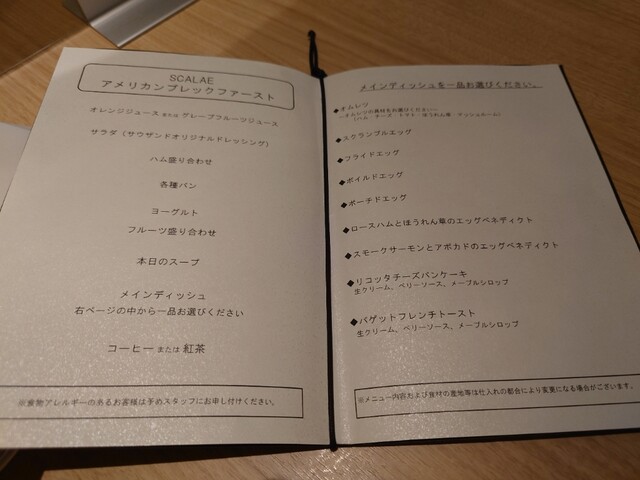 SCALAE
アメリカンブレックファースト
オレンジジュース または グレープフルーツジュース
サラダ（サウザンドオリジナルドレッシング）
ハム盛り合わせ
各種パン
ヨーグルト
フルーツ盛り合わせ
本日のスープ
メインディッシュ
右ページの中から一品お選びください
コーヒー または 紅茶
※食物アレルギーのあるお客様は予めスタッフにお申し付けください。
メインディッシュを一品お選びください。
◆オムレツ
～オムレツの具材をお選びください～
（ハム・チーズ・トマト・ほうれん草・マッシュルーム）
◆スクランブルエッグ
◆フライドエッグ
◆ボイルドエッグ
◆ポーチドエッグ
◆ロースハムとほうれん草のエッグベネディクト
◆スモークサーモンとアボカドのエッグベネディクト
◆リコッタチーズパンケーキ
生クリーム、ベリーソース、メープルシロップ
◆バゲットフレンチトースト
生クリーム、ベリーソース、メープルシロップ
※メニュー内容および食材の産地等は仕入れの都合により変更になる場合がございます。